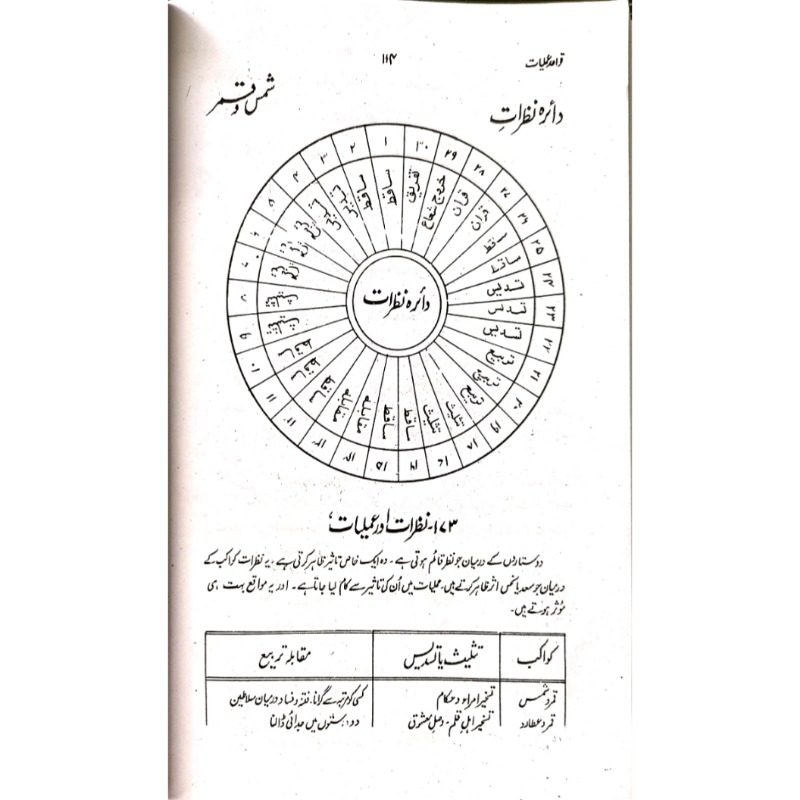 قواعد عملیات
۱۱۴
دائرہ نظرات
شمس و قمر
۱
۲
۳
۴
۵
۶
۷
۸
۹
۱۰
۱۱
۱۵
۱۶
۱۷
۱۸
۱۹
۲۰
۲۱
۲۲
۲۳
۲۴
۲۵
۲۶
۲۷
۲۸
۲۹
۳۰
ساقط
ساقط
ساقط
ساقط
ساقط
مقابلہ
مقابلہ
ساقط
ساقط
تثلیث
تثلیث
تربیع
تربیع
تربیع
تسدیس
تسدیس
تسدیس
ساقط
ساقط
قران
قران
خروج شعاع
تفریق
دائرہ نظرات
۱۷۳۔ نظرات اور عملیات،
دو ستاروں کے درمیان جو نظر قائم ہوتی ہے ۔ وہ ایک خاص تاثیر ظاہر کرتی ہے ۔ یہ نظرات کواکب کے
درمیان جو سعد یا نحس اثر ظاہر کرتے ہیں، عملیات میں اُن کی تاثیر سے کام لیا جاتا ہے ۔ اور یہ مواقع بہت ہی
مؤثر ہوتے ہیں۔
کواکب تثلیث یا تسدیس مقابلہ تربیع
قمر و شمس تسخیر امراء و حکام کسی کو مرتبہ سے گرانا۔ فتنہ و فساد درمیان سلاطین
قمر و عطارد تسخیر اہل قلم ۔ وصل معشوق دو دوستوں میں جدائی ڈالنا